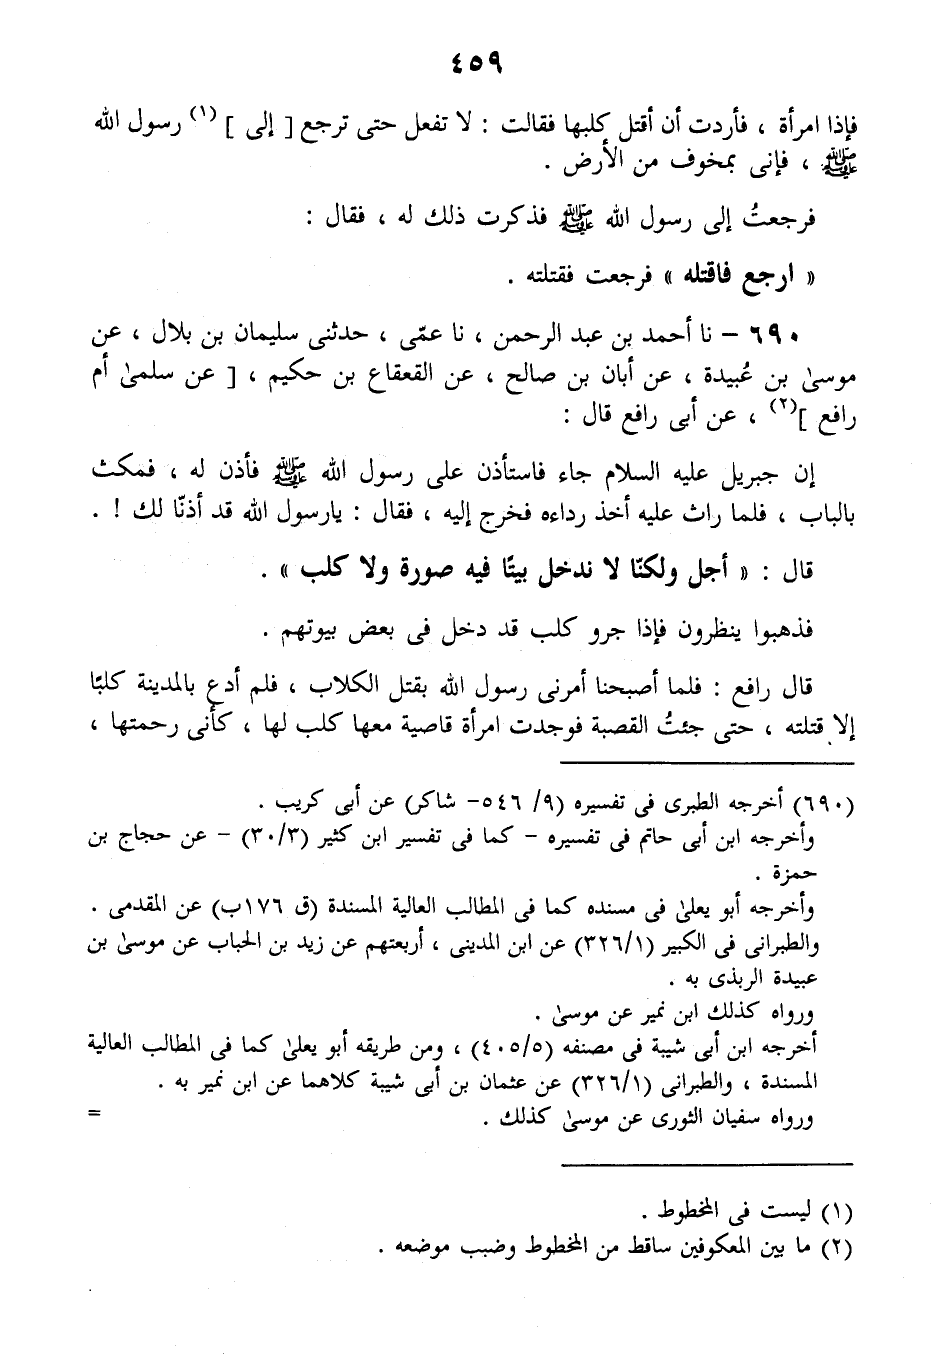 ٤٥٩
فإذا امرأة ، فأردت أن أقتل كلبها فقالت : لا تفعل حتى ترجع [ إلى ] (١) رسول الله
ﷺ ، فإنى بمخوف من الأرض .
فرجعتُ إلى رسول الله ﷺ فذكرت ذلك له ، فقال :
« ارجع فاقتله » فرجعت فقتلته .
٦٩٠ – نا أحمد بن عبد الرحمن ، نا عمّى ، حدثنى سليمان بن بلال ، عن
موسىٰ بن عُبيدة ، عن أبان بن صالح ، عن القعقاع بن حكيم ، [ عن سلمىٰ أم
رافع ](٢) ، عن أبى رافع قال :
إن جبريل عليه السلام جاء فاستأذن على رسول الله ﷺ فأذن له ، فمكث
بالباب ، فلما راث عليه أخذ رداءه فخرج إليه ، فقال : يارسول الله قد أذنّا لك ! .
قال : « أجل ولكنّا لا ندخل بيتًا فيه صورة ولا كلب » .
فذهبوا ينظرون فإذا جرو كلب قد دخل فى بعض بيوتهم .
قال رافع : فلما أصبحنا أمرنى رسول الله بقتل الكلاب ، فلم أدع بالمدينة كلبًا
إلا قتلته ، حتى جئتُ القصبة فوجدت امرأة قاصية معها كلب لها ، كأنى رحمتها ،
(٦٩٠) أخرجه الطبرى فى تفسيره (٩/ ٥٤٦– شاكر) عن أبى كريب .
وأخرجه ابن أبى حاتم فى تفسيره – كما فى تفسير ابن كثير (٣٠/٣) – عن حجاج بن
حمزة .
وأخرجه أبو يعلىٰ فى مسنده كما فى المطالب العالية المسندة (ق ١٧٦ب) عن المقدمى .
والطبرانى فى الكبير (٣٢٦/١) عن ابن المدينى ، أربعتهم عن زيد بن الحباب عن موسىٰ بن
عبيدة الربذى به .
ورواه كذلك ابن نمير عن موسىٰ .
أخرجه ابن أبى شيبة فى مصنفه (٤٠٥/٥) ، ومن طريقه أبو يعلىٰ كما فى المطالب العالية
المسندة ، والطبرانى (٣٢٦/١) عن عثمان بن أبى شيبة كلاهما عن ابن نمير به .
ورواه سفيان الثورى عن موسىٰ كذلك . =
(١) ليست فى المخطوط .
(٢) ما بين المعكوفين ساقط من المخطوط وضبب موضعه .